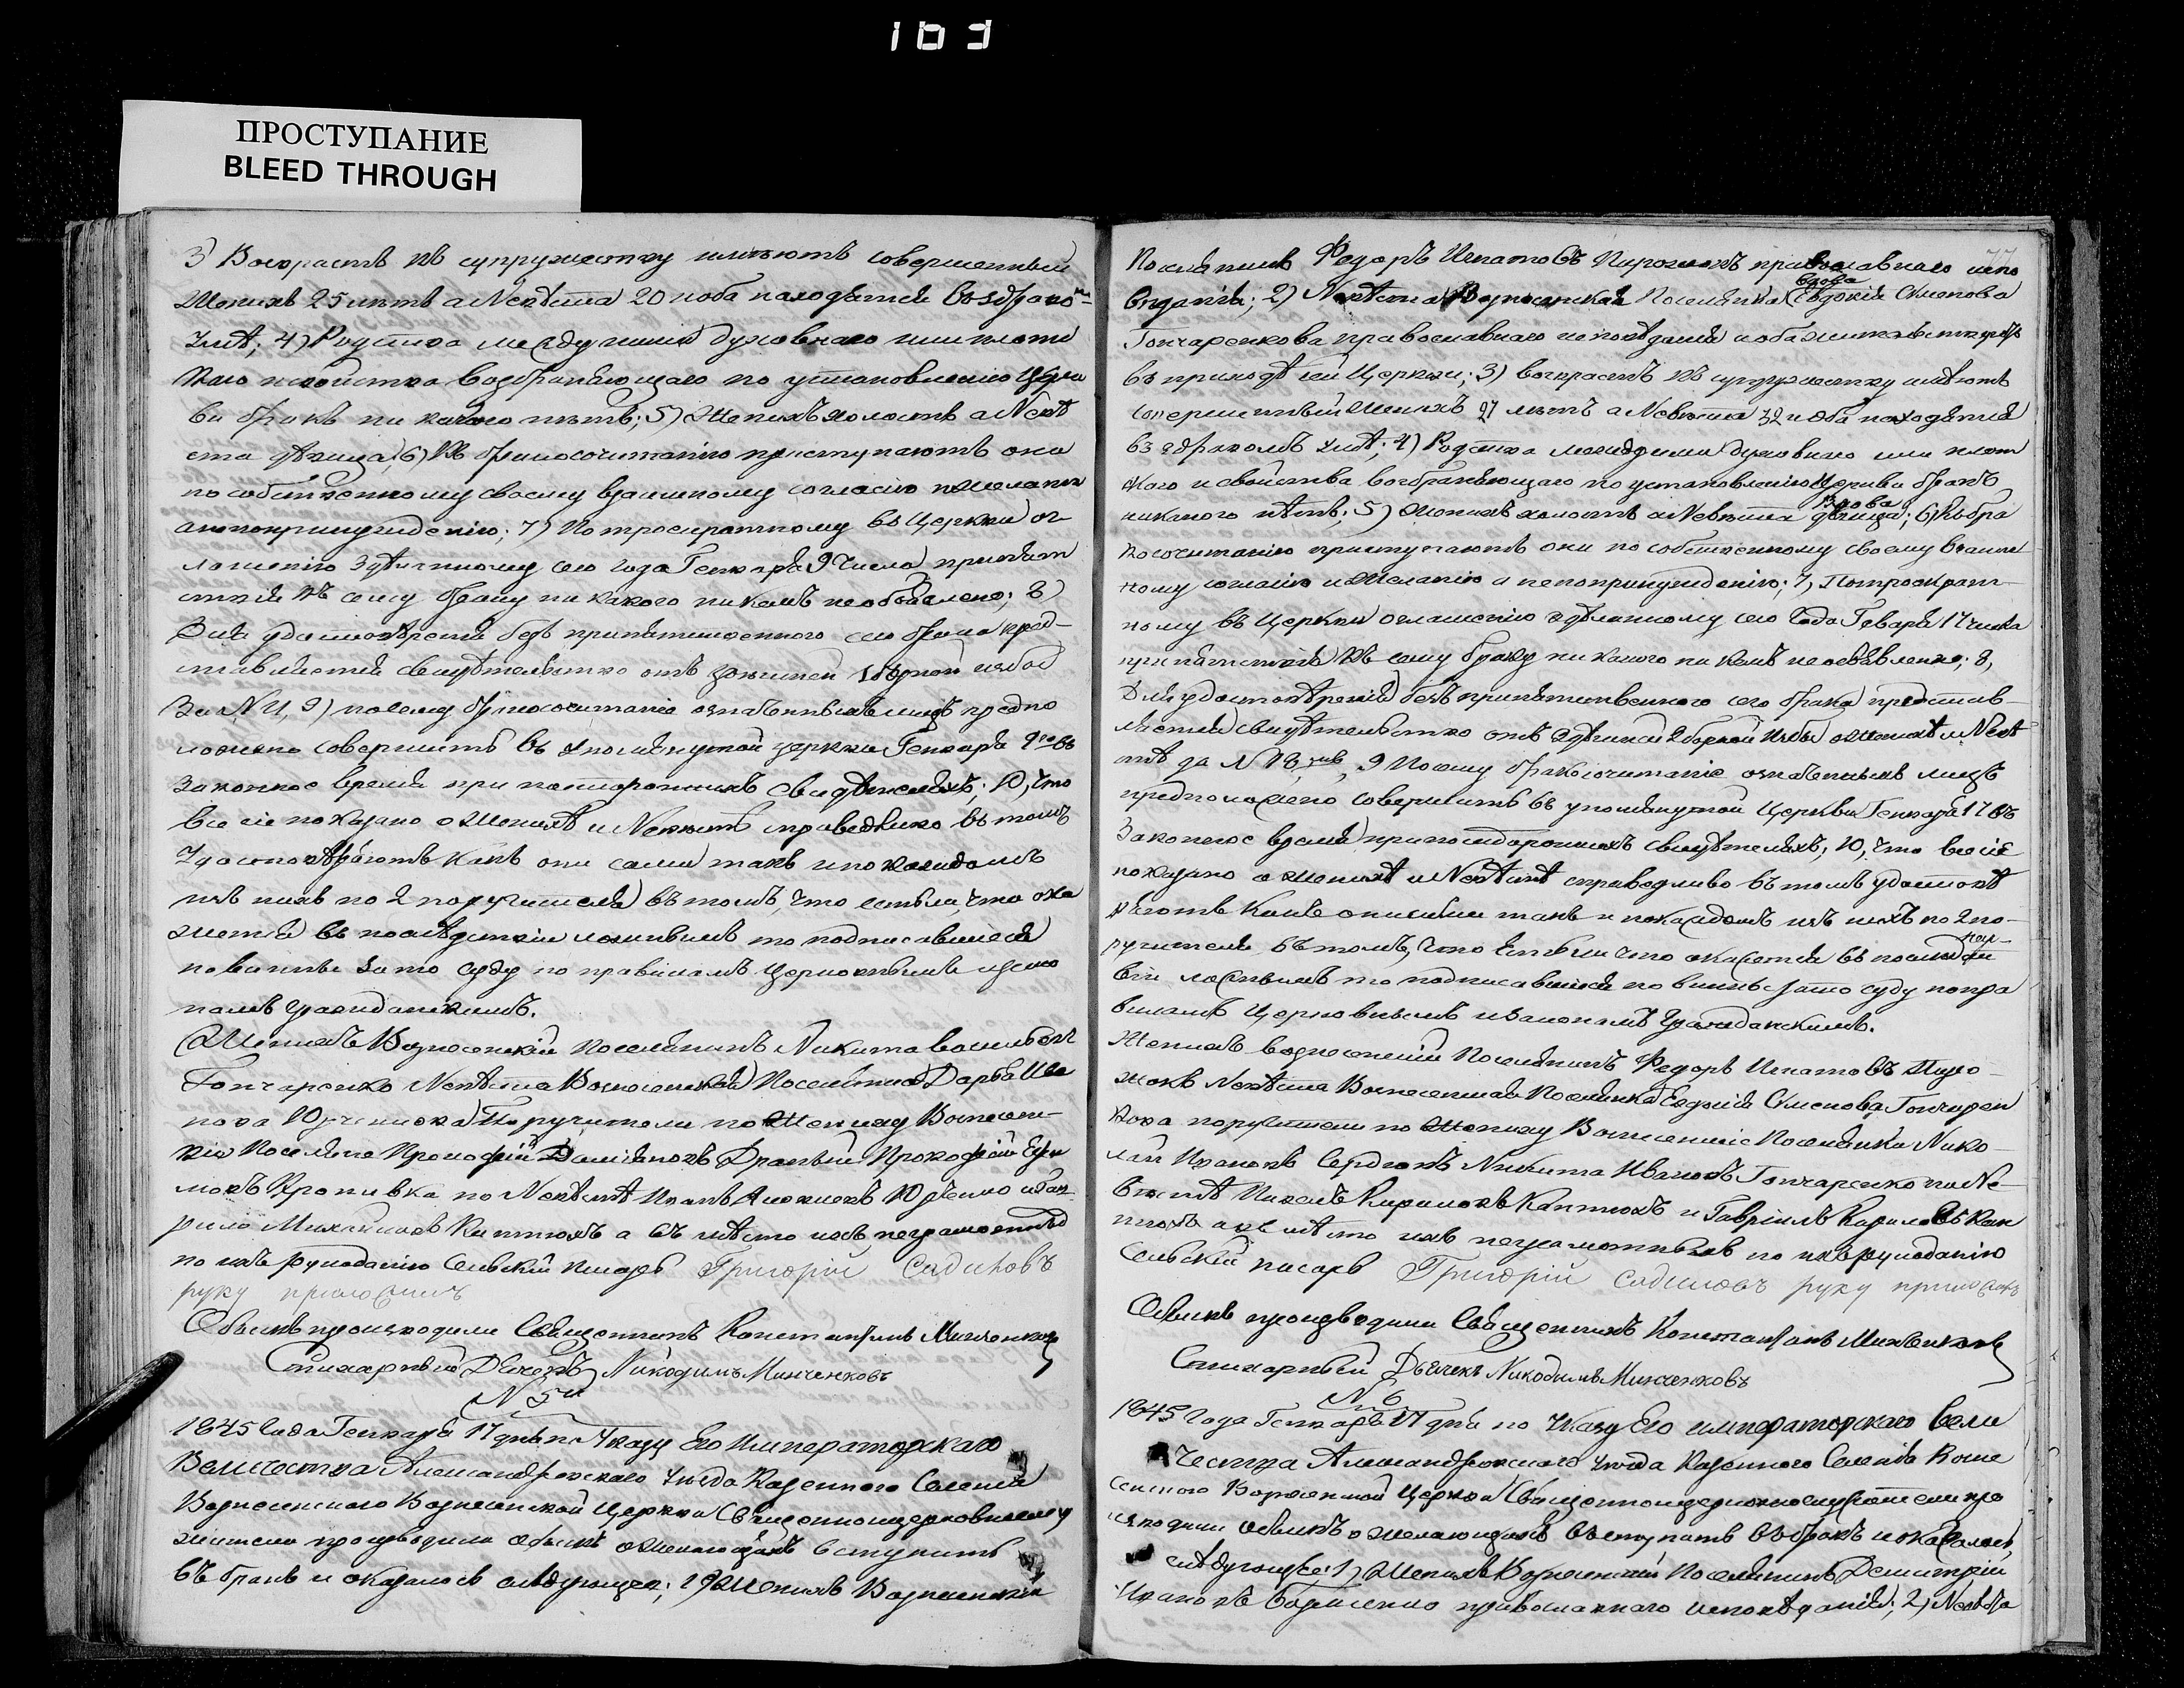 163
ПРОСТУПАНИЕ
BLEED THROUGH
3) Возрастъ къ супружеству имѣютъ совершенный
Женихъ 25 лѣтъ а Невѣста 20 и оба находятся въ здравомъ
Умѣ; 4) Родства между ними духовнаго или плот
скаго и свойства возбраняющаго по установленію Церк
ви бракъ ни какого нѣтъ; 5) Женихъ холостъ а Невѣ
ста дѣвица; 6) Къ бракосочитанію приступаютъ они
по собственному своему взаимному согласію и желанію
а непопринужденію; 7) По троекратному въ Церкви ог
лашенію здѣланному сего года Генваря 9 числа препят
ствія къ сему браку ни какого никемъ необъявлено; 8)
Для удостовѣренія безъ припятственного сего брака пред-
ставляется свидѣтельство отъ сборной избы
За № 4, 9) посему бракосочитаніе означенныхъ лицъ предпо
ложено совершить въ упомянутой церкви Генваря 9го въ
законное время при постороннихъ свидѣтеляхъ; 10, что
все сіе показано о Женихѣ и Невѣстѣ справедливо въ томъ
Удостовѣряютъ какъ они сами такъ и по каждомъ
изъ нихъ по 2 поручителя въ томъ, что естьли, что ока
жется въ послѣдствіи ложнымъ то подписавшіеся
повинны за то суду по правиламъ церковнымъ и зако
намъ гражданскимъ.
Женихъ Вознесенскій Поселянинъ Никита Васильевъ
Гончаренко Невѣста Вознесенская Поселянка Дарья Ива
нова Юрченкова Поручители по Жениху Вознесен-
скія Поселяне Прокофій Даміановъ Драный Прокофій Ефи
мовъ Кропивка по Невѣстѣ Иванъ Юрченко и Гав
рило Михайловъ Каптюхъ а въ мѣсто ихъ неграмотныхъ
по ихъ рукоданію Сельскій писарь Григорій Садиковъ
руку приложилъ
Обыскъ производили Священникъ Константинъ
Стихарный Дьячекъ Никодимъ Минченковъ
№ 5й
1845 Года Генваря 17 дня по Указу Его Императорскаго
Величества Александровскаго Уезда Казенного Селенія
Вознесенскаго Вознесенской Церкви Священноицерковнослу
жители производили обыскъ о желающихъ вступить
въ бракъ и оказалось слѣдующее; 1) Женихъ Вознесенскій
77
Поселянинъ Федоръ Игнатовъ Пирожокъ православнаго испо
веданія; 2) Невѣста Вознесенская Поселянка вдова Евдокія Семенова
Гончаренкова православнаго исповѣданія и оба
въ приходѣ сей Церкви; 3) возрастъ къ супружеству имѣютъ
совершенный Женихъ 27 лѣтъ а Невѣста 32 и Оба находятся
въ здравомъ Умѣ; 4) Родства между ними духовнаго или плот
скаго и свойства возбраняющаго по установленію Церкви бракъ
никакого нѣтъ; 5) Женихъ холостъ а Невѣста дѣвица Вдова; 6) Къ бра
косочитанію приступаютъ они по собственному своему взаим
ному согласію и Желанію а непопринужденію; 7, Потроекрат-
ному въ Церкви оглашенію здѣланному сего Года Геваря 17 числа
припятствія къ сему браку ни какого никемъ необъявленно; 8,
Для удостовѣренія безъ припятственного сего брака представ-
ляется свидѣтельство отъ сборной избы о женихѣ и Невѣ
стѣ за № , 9 Посему бракосочитаніе означенныхъ лицъ
предположено совершить въ упомянутой Церкви Генваря 17 въ
Законное время при постороннихъ свидѣтеляхъ; 10, что все сіе
показано о женихѣ и Невѣстѣ справедливо въ томъ удостовѣ
ряютъ какъ они сами такъ и по каждомъ изъ нихъ по 2 по-
ручителя въ томъ, что Естьли что окажется въ послѣдст
віи ложнымъ то подписавшіися повинны за то суду по пра
виламъ Церковнымъ и законамъ Гражданскимъ.
Женихъ вознесенскій Поселянинъ Федоръ Игнатовъ Пиро-
жокъ Невѣста Вознесенская Поселянка Евдокія Семенова Гончарен
кова поручители по Жениху Вознесенскіе Поселянки Нико-
лай Ивановъ Сердюкъ Никита Ивановъ Гончаренко по Не-
вѣстѣ Кириловъ Каптюхъ и Гавріилъ Кириловъ Кап
тюхъ а въ мѣсто ихъ неграмотныхъ по ихъ рукоданію
Сельскій писарь Григорій Садиковъ руку приложилъ
Обыскъ производили Священникъ Константинъ
Стихарный Дьячекъ Никодимъ Минченковъ
№ 6
1845 Года Генваря 17 дня по Указу Его императорскаго Вели
чества Александровскаго Уезда Казенного Селенія Возне
сенского Вознесенской Церкви Священноицерковнослужители про
изводили обыскъ о желающихъ вступить въ бракъ и оказалось
слѣдующее: 1) Женихъ Вознесенскій Поселянинъ Дмитрій
Ивановъ православнаго исповѣданія; 2) Невѣста